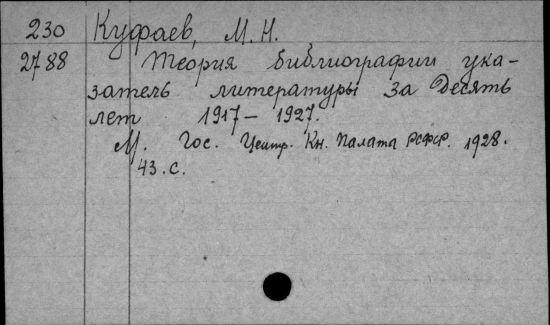 230 Куфаев, М. Н.
2788 Теория библиографии ука-
затель литературы за Десять
лет 1917 – 1927.
М. Гос. Центр. Кн. Палата РСФСР. 1928.
43. с.